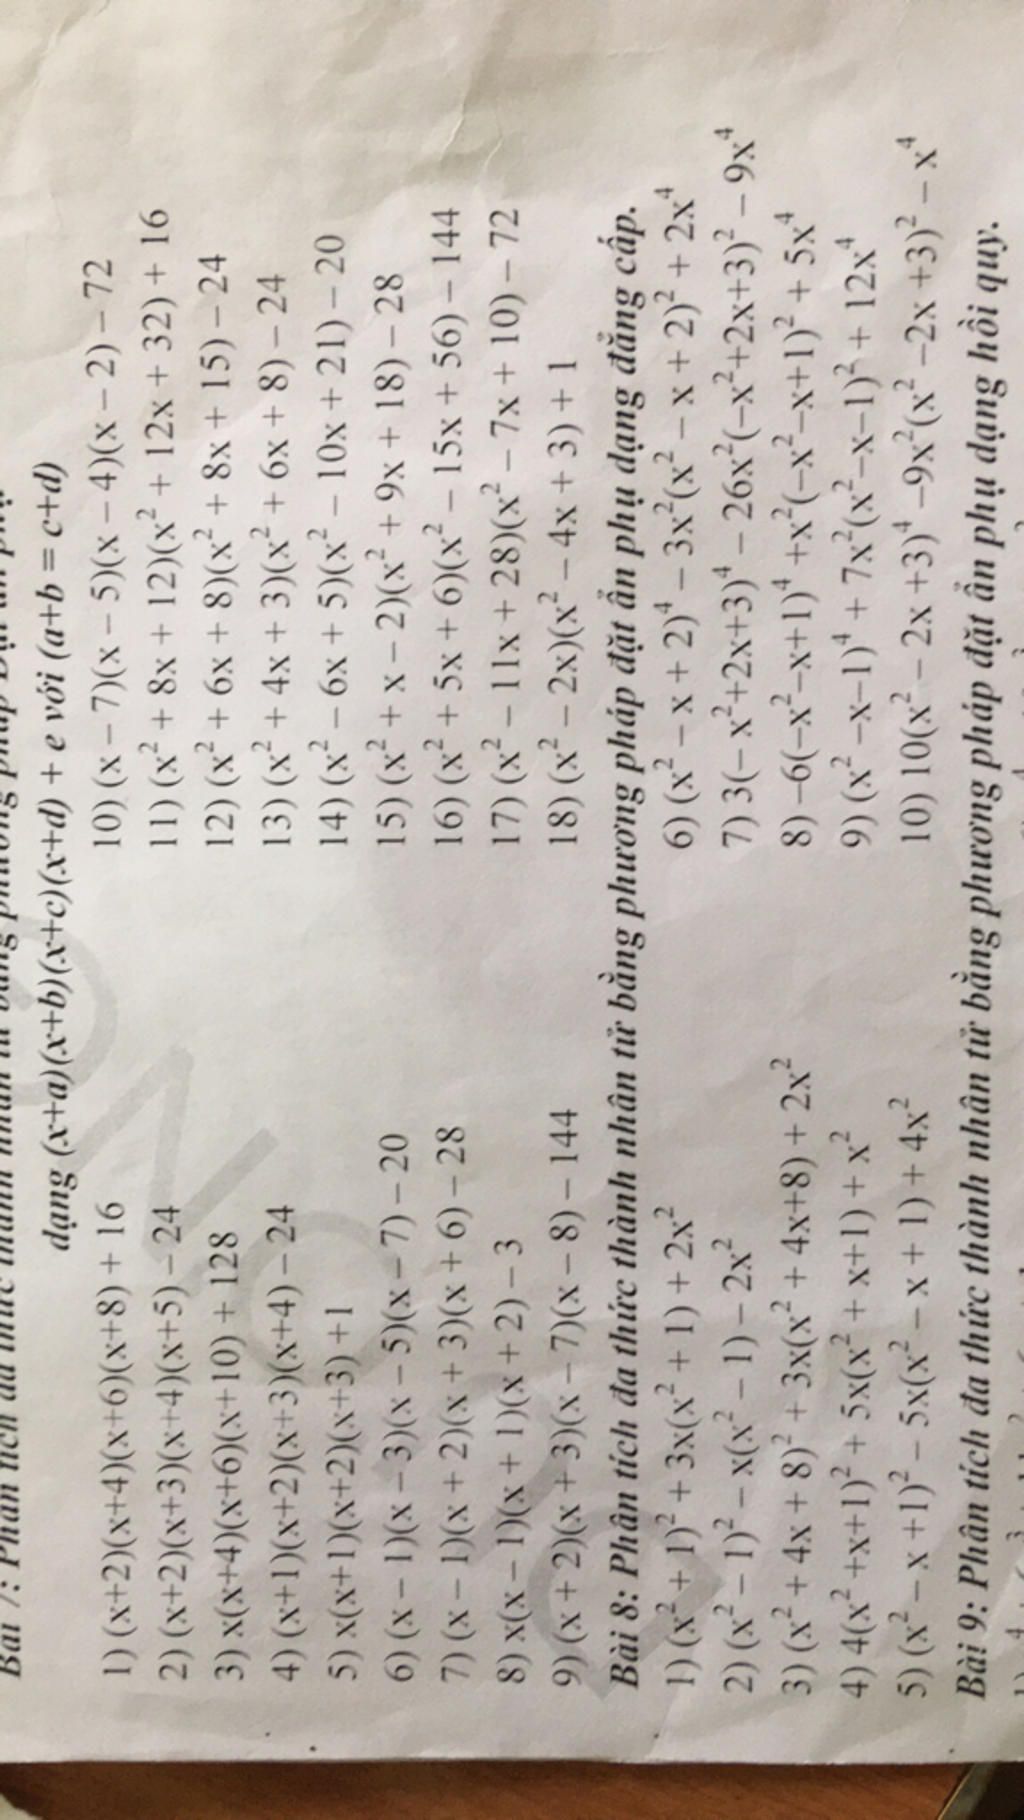 Bài 7: Phân tích đa thức thành nhân tử bằng phương pháp
dạng (x+a)(x+b)(x+c)(x+d) + e với (a+b = c+d)
1) (x+2)(x+4)(x+6)(x+8) + 16
2) (x+2)(x+3)(x+4)(x+5) – 24
3) x(x+4)(x+6)(x+10) + 128
4) (x+1)(x+2)(x+3)(x+4) – 24
5) x(x+1)(x+2)(x+3) +1
6) (x – 1)(x – 3)(x – 5)(x – 7) – 20
7) (x – 1)(x + 2)(x + 3)(x + 6) – 28
8) x(x – 1)(x + 1)(x + 2) – 3
9) (x + 2)(x + 3)(x – 7)(x – 8) – 144
10) (x – 7)(x – 5)(x – 4)(x – 2) – 72
11) (x² + 8x + 12)(x² + 12x + 32) + 16
12) (x² + 6x + 8)(x² + 8x + 15) – 24
13) (x² + 4x + 3)(x² + 6x + 8) – 24
14) (x² – 6x + 5)(x² – 10x + 21) – 20
15) (x² + x – 2)(x² + 9x + 18) – 28
16) (x² + 5x + 6)(x² – 15x + 56) – 144
17) (x² – 11x + 28)(x² – 7x + 10) – 72
18) (x² – 2x)(x² – 4x + 3) + 1
Bài 8: Phân tích đa thức thành nhân tử bằng phương pháp đặt ẩn phụ dạng đẳng cấp.
1) (x² + 1)² + 3x(x² + 1) + 2x²
2) (x² – 1)² – x(x² – 1) – 2x²
3) (x² + 4x + 8)² + 3x(x² + 4x+8) + 2x²
4) 4(x² +x+1)² + 5x(x² + x+1) + x²
5) (x² – x +1)² – 5x(x² – x + 1) + 4x²
6) (x² – x + 2)⁴ – 3x²(x² – x + 2)² + 2x⁴
7) 3(– x²+2x+3)⁴ – 26x²(–x²+2x+3)² – 9x⁴
8) –6(–x²–x+1)⁴ +x²(–x²–x+1)² + 5x⁴
9) (x² –x–1)⁴ + 7x²(x²–x–1)² + 12x⁴
10) 10(x² – 2x +3)⁴ –9x²(x² –2x +3)² – x⁴
Bài 9: Phân tích đa thức thành nhân tử bằng phương pháp đặt ẩn phụ dạng hồi quy.